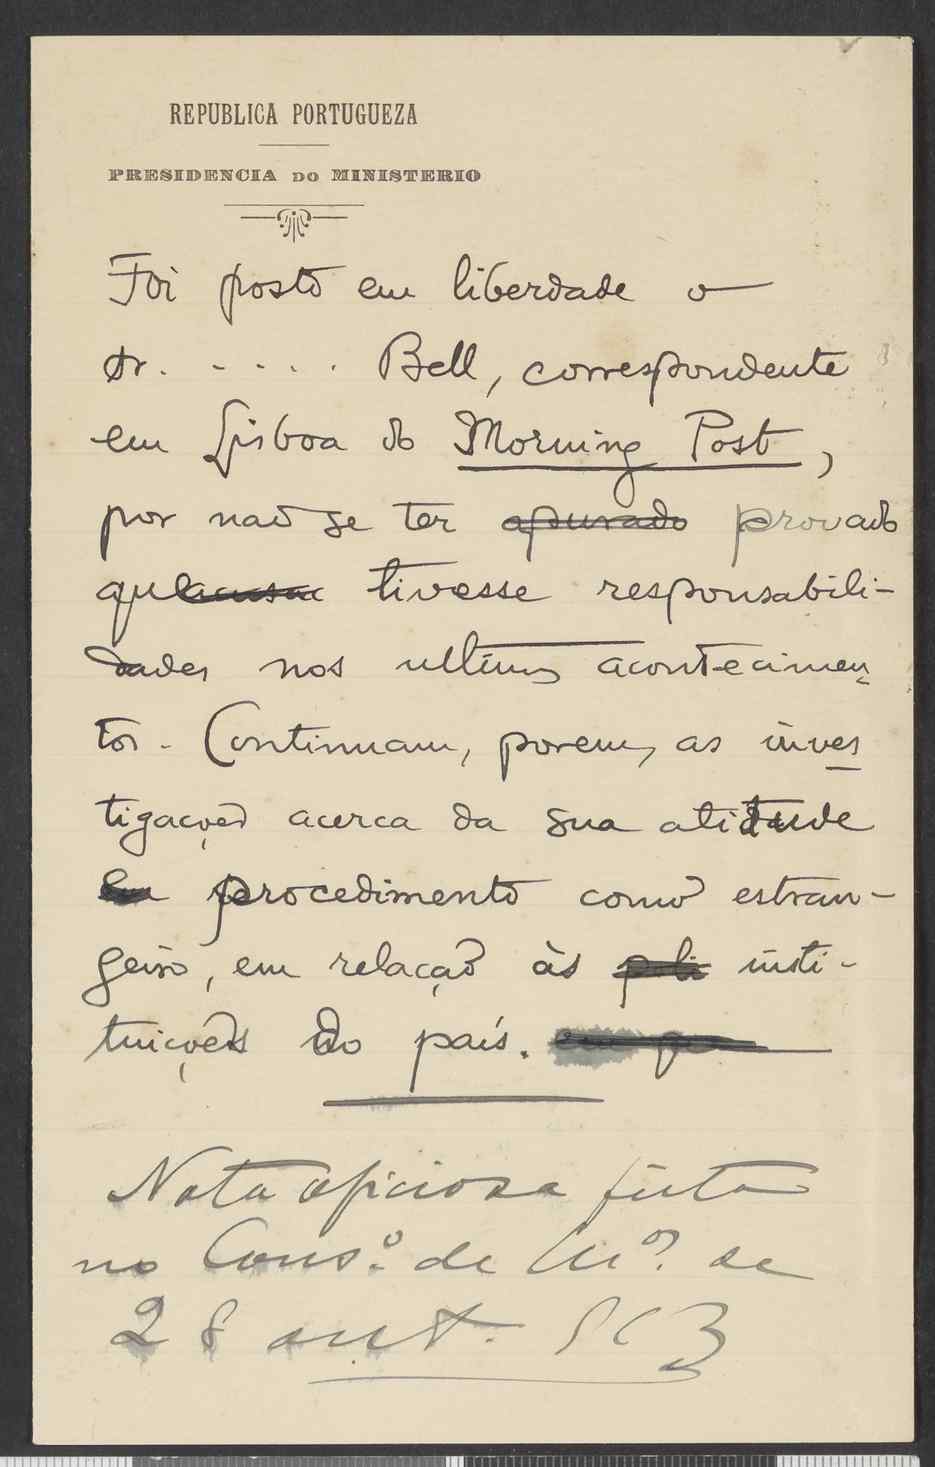 REPUBLICA PORTUGUEZA
PRESIDENCIA DO MINISTERIO
Foi posto em liberdade o
sr. . . . . . Bell, correspondente
em Lisboa do Morning Post,
por não se ter apurado provado
que tivesse responsabili-
dades nos ultimos acontecimen-
tos. Continuam, porem, as inves
tigações acerca da sua atitude
procedimento como estran-
geiro, em relação às insti-
tuições do país.
Nota oficiosa feita
no Cons.º de M.os de
28 out. 913